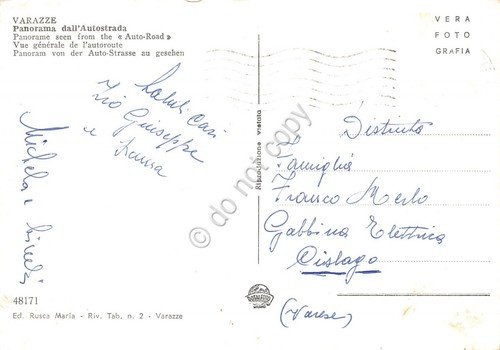 VARAZZE
Panorama dall'Autostrada
Panorame seen from the « Auto-Road »
Vue générale de l'autoroute
Panoram von der Auto-Strasse au gesehen
VERA
FOTO
GRAFIA
Saluti Cari
Zio Giuseppe
e
Michela e
Riproduzione vietata
Distinta
Famiglia
Franco Merlo
Gabbina Elettrica
Cislago
(Varese)
48171
Ed. Rusca Maria - Riv. Tab. n. 2 - Varazze
© do not copy